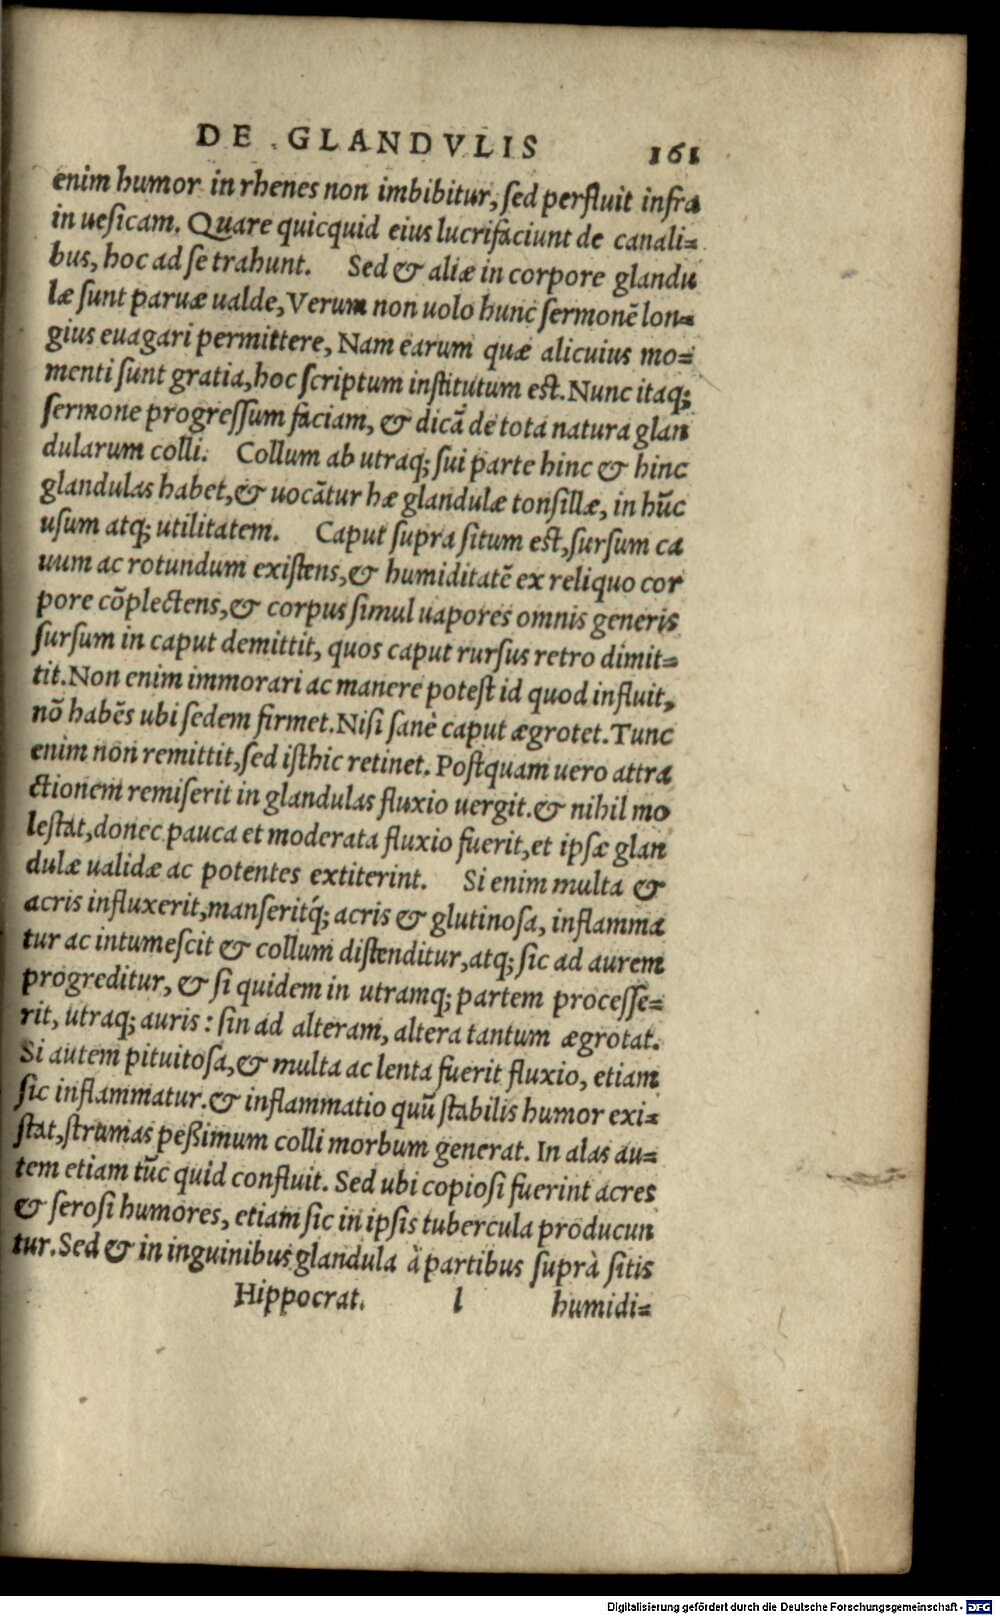 DE GLANDVLIS 161
enim humor in rhenes non imbibitur, ſed perfluit infra
in ueſicam. Quare quicquid eius lucrifaciunt de canali=
bus, hoc ad ſe trahunt. Sed & aliæ in corpore glandu
læ ſunt paruæ ualde, Verum non uolo hunc ſermonē lon=
gius euagari permittere, Nam earum quæ alicuius mo=
menti ſunt gratia, hoc ſcriptum inſtitutum eſt. Nunc itaq;
ſermone progreſſum faciam, & dicā de tota natura glan
dularum colli. Collum ab utraq; ſui parte hinc & hinc
glandulas habet, & uocātur hæ glandulæ tonſillæ, in hūc
uſum atq; utilitatem. Caput ſupra ſitum eſt, ſurſum ca
uum ac rotundum exiſtens, & humiditatē ex reliquo cor
pore cōplectens, & corpus ſimul uapores omnis generis
ſurſum in caput demittit, quos caput rurſus retro dimit=
tit. Non enim immorari ac manere poteſt id quod influit,
nō habēs ubi ſedem firmet. Niſi ſanè caput ægrotet. Tunc
enim non remittit, ſed iſthic retinet. Poſtquam uero attra
ctionem remiſerit in glandulas fluxio uergit. & nihil mo
leſtat, donec pauca et moderata fluxio fuerit, et ipſæ glan
dulæ ualidæ ac potentes extiterint. Si enim multa &
acris influxerit, manſeritq́; acris & glutinoſa, inflamma
tur ac intumeſcit & collum diſtenditur, atq; ſic ad aurem
progreditur, & ſi quidem in utramq; partem proceſſe=
rit, utraq; auris: ſin ad alteram, altera tantum ægrotat.
Si autem pituitoſa, & multa ac lenta fuerit fluxio, etiam
ſic inflammatur. & inflammatio quū ſtabilis humor exi=
ſtat, ſtrumas peßimum colli morbum generat. In alas au=
tem etiam tūc quid confluit. Sed ubi copioſi fuerint acres
& ſeroſi humores, etiam ſic in ipſis tubercula producun
tur. Sed & in inguinibus glandula à partibus ſuprà ſitis
Hippocrat. l humidi=
Digitalisierung gefördert durch die Deutsche Forschungsgemeinschaft - DFG